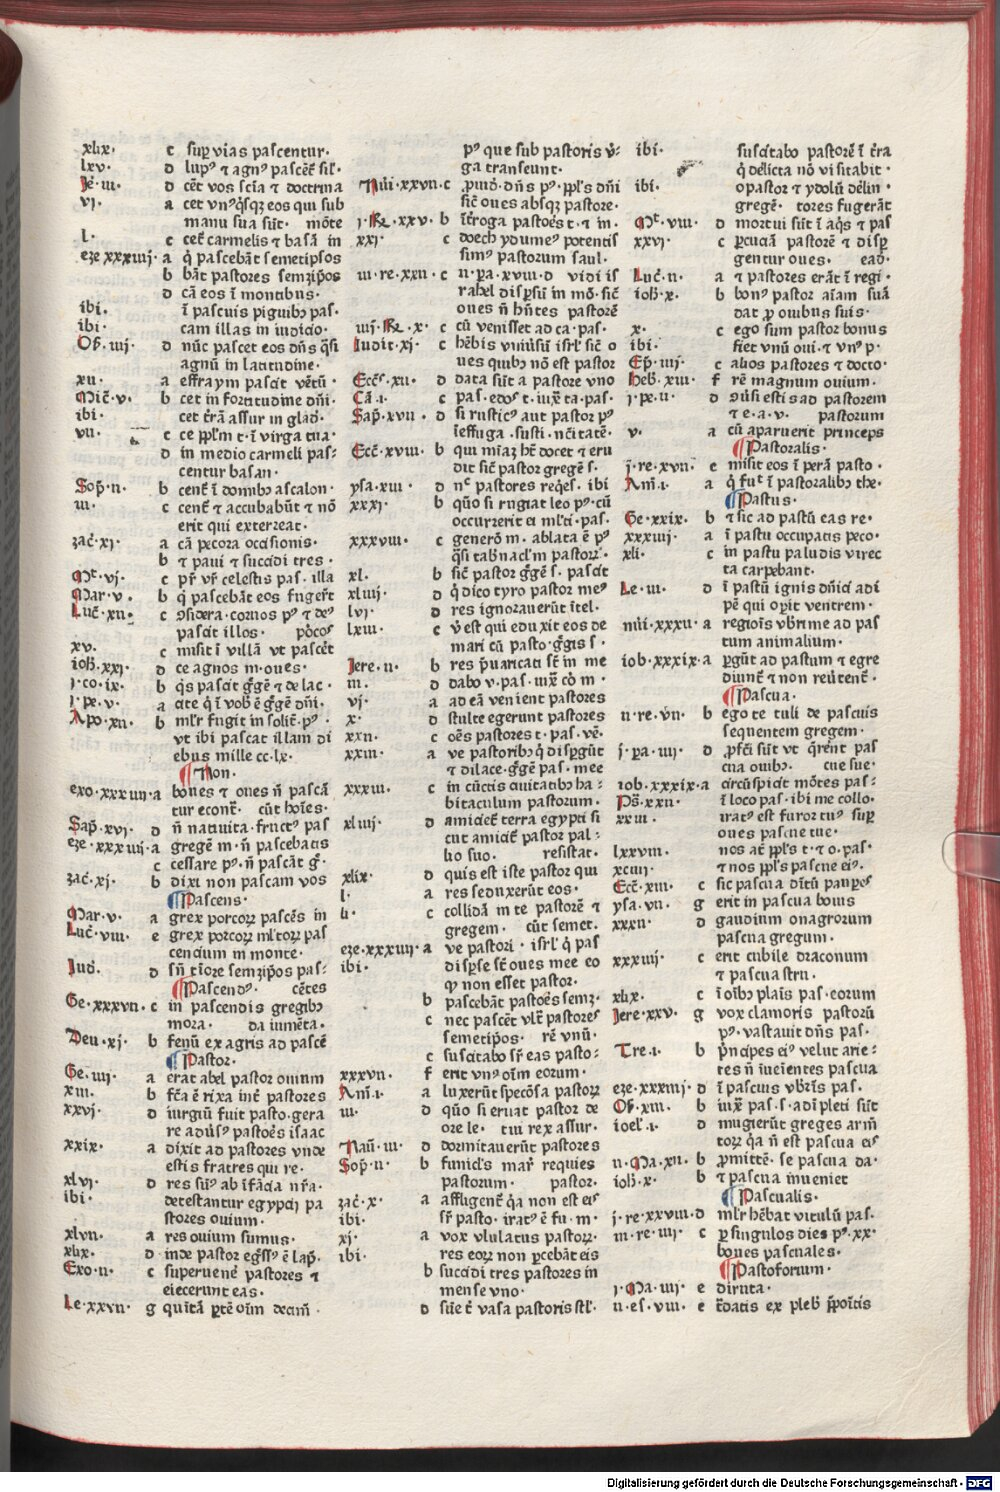 xlix. c suꝑ vias pascentur.
lxv. d lupꝰ ⁊ agnꝰ pascēt sił.
Je᷑. iii. d cēt vos scīa ⁊ doctrina
vj. a cet vnꝰq̇sqꝫ eos qui sub
manu sua sūt. mōte
l. c cet᷑ carmelis ⁊ basā in
eze xxxiiij. a q̇ pascebāt semetipsos
b bāt pastores semꝫip̄os
d cā eos ī montibus.
ibi. ī pascuis piguibꝫ pas.
ibi. cam illas in iudicio.
Os̄. iiij. d nūc pascet eos dn̄s q̄si
agnū in latitudine.
xii. a effraym pascit vētū.
Mic̄. v. b cet in fortitudine dn̄i.
ibi. cet t᷑rā assur in glad̄.
vii. c ce ppl̄m t. ī virga tua.
d in medio carmeli pas-
centur basan.
Sop̄. ii. b cent᷑ ī domibꝫ ascalon.
iii. c cent᷑ ⁊ accubabūt ⁊ nō
erit qui exterreat.
zac̄. xj. a cā pecora occisionis.
b ⁊ paui ⁊ succidi tres.
Mᵗ. vj. c pr̄ vr̄ celestis pas. illa
Mar. v. b q̇ pascebāt eos fuger᷑t
Luc̄. xii. c ꝯsidera. coruos pꝰ ⁊ deꝰ
pascit illos. pōcos
xv. c misit ī villā vt pascēt
ioh̄. xxj. d ce agnos m. oues.
j. co. ix. b q̇s pascit g᷑gē ⁊ de lac.
j. pe. v. a cite q̇ ī vob̄ ē g᷑gē dn̄i.
Apo. xii. b ml̄r fugit in solit᷑. pꝰ.
vt ibi pascat illam di
ebus mille cc. lx.
¶Non.
exo. xxxiiij. a boues ⁊ oues n̄ pascā
tur econt᷑. cūt hoīes.
Sap̄. xvj. d n̄ natiuita. fructꝰ pas
eze. xxxiiij. a gregē m. n̄ pascebatis
c cessare pꝰ. n̄ pascāt g᷑.
zac̄. xj. b dixi non pascam vos
¶Pascens.
Mar. v. a grex porcoꝝ pascēs in
Luc̄. viii. e grex porcoꝝ ml̄toꝝ pas
centium in monte.
Jud̄. d sn̄ t᷑iore semꝫip̄os pas-
¶Pascendꝰ. cētes
Ge. xxxvii. c in pascendis gregibꝫ
mora. da iumēta.
Deu. xj. b fenū ex agris ad pascē
¶Pastor.
Ge. iiij. a erat abel pastor ouium
xiii. b fc̄a ē rixa int᷑ pastores
xxvj. d iurgiū fuit pasto. gera
re aduꝰ. pastoēs isaac
xxix. a dixit ad pastores vnde
estis fratres qui re.
xlvj. d res suꝰ ab īfācia nr̄a.
ibi. detestantur egypcij pa
stores ouium.
xlvii. a res ouium sumus.
xlix. d inde pastor eg᷑ssꝰ ē lap̄.
Exo. ii. c superuene᷑ pastores ⁊
eiecerunt eas.
Le. xxvii. g quitā ꝑtē oīm decim̄.
pꝰ que sub pastoris v᷑-
ga transeunt.
Nūi. xxvii. c ꝓuid̄. dn̄s pꝰ. ppl̄s dn̄i
sic̄ oues absqꝫ pastore.
j. Re. xxv. b īt᷑roga pastoēs t. ⁊ in.
xxj. c doech ydumeꝰ potentis
simꝰ pastorum saul.
iii. re. xxii. c ii. ꝑa. xviii. d vidi is
rahel disꝑsū in mō. sic̄
oues n̄ hn̄tes pastorē
iiij. Re. x. c cū venisset ad ca. pas.
Judit. xj. c hēbis vniūsū isrl̄ sic̄ o
ues quibꝫ nō est pastor
Ecc̄s. xii. d data sūt a pastore vno
Cā. i. c pas. edos t. iuxta. pas.
Sap̄. xvii. d si rusticꝰ aut pastor pꝰ
īeffuga. susti. nc̄itatē.
Ecc̄. xviii. b qui miaꝫ hꝫ docet ⁊ eru
dit sic̄ pastor gregē s.
ysa. xiii. d nᶜ pastores req̇es. ibi
xxxj. b quō si rugiat leo pꝰ. cū
occurrerit ei ml̄ti. pas.
xxxviii. c generō m. ablata ē pꝰ
q̄si tab̄nacl̄m pastorꝝ.
xl. b sic̄ pastor g᷑gē s. pascit
xliiij. d q̇ dico tyro pastor meꝰ
lvj. d res ignorauerūt ītel.
lxiii. c v̄ est qui eduxit eos de
mari cū pasto. g᷑gis s.
Jere. ii. b res p̄uaricati st̄ in me
iii. d dabo v. pas. iux̄ cō m.
vj. a ad eā venient pastores
x. d stulte egerunt pastores
xxii. c oēs pastores t. pas. vē.
xxiii. a ve pastoribꝫ q̇ disꝑgūt
⁊ dilace. g᷑gē pas. mee
xxxiii. c in cūctis ciuitatibꝫ ha-
bitaculum pastorum.
xliiij. d amiciet᷑ terra egypti si
cut amicit᷑ pastor pal-
lio suo. resistat.
xlix. d quis est iste pastor qui
l. a res seduxerūt eos.
li. c collidā in te pastorē ⁊
gregem. cūt semet.
eze. xxxiiij. a ve pastori. isrl̄ q̇ pas
ibi. disꝑse st̄ oues mee eo
ꝙ non esset pastor.
b pascebāt pastoēs semꝫ.
c nec pascēt vlt᷑ pastores
semetip̄os. rē vnū.
c suscitabo sꝑ eas pasto-
xxxvii. f erit vnꝰ oīm eorum.
Am̄. i. a luxerūt specōsa pastorꝝ
iii. d quō si eruat pastor de
ore le. tui rex assur.
Nau᷑. iii. d dormitauerūt pastores
Sop̄. ii. b funicl̄s mar᷑ requies
pastorum. pastor.
zac̄. x. a affligent᷑ q̇a non est eis
ibi. sꝑ pasto. iratꝰ ē fu. m.
xj. a vox vlulatus pastorꝝ.
ibi. res eorꝝ non ꝑcebāt eis
b succidi tres pastores in
mense vno.
d sūe t᷑ vasa pastoris stł.
ibi. suscitabo pastorē ī t᷑ra
q̇ delicta nō visitabit.
ibi. o pastor ⁊ ydolū delin.
gregē. tores fugerūt
Mᵗ. viii. d mortui sūt ī aq̇s ⁊ pas
xxvj. c ꝑcuciā pastorē ⁊ disꝑ
gentur oues. ead̄.
Luc̄. ii. a ⁊ pastores erāt ī regi.
ioh̄. x. b bonꝰ pastor aīam suā
dat ꝓ ouibus suis.
x. c ego sum pastor bonus
ibi. fiet vnū oui. ⁊ vnꝰ p.
Ep̄. iiij. c alios pastores ⁊ docto.
Heb̄. xiii. f rē magnum ouium.
j. pe. ii. d ꝯūsi estis ad pastorem
⁊ e. a. v. pastorum
v. a cū aparuerit princeps
¶Pastoralis.
j. re. xvii. e misit eos ī perā pasto.
Am̄. i. a q̇ fuᵗ ī pastoralibꝫ the.
¶Pastus.
Ge. xxix. b ⁊ sic ad pastū eas re.
xxxiiij. a ī pastu occupatis peco.
xli. c in pastu paludis virec
ta carpebant.
Le. iii. d ī pastū ignis dn̄ici adi
pē qui oꝑit ventrem.
nūi. xxxii. a regiois vb᷑rime ad pas
tum animalium.
iob. xxxix. a ꝑgūt ad pastum ⁊ egre
diunt᷑ ⁊ non reūtent᷑.
¶Pascua.
ii. re. vii. b ego te tuli de pascuis
sequentem gregem.
j. ꝑa. iiij. d ꝓfc̄i sūt vt q̄rent pas
cua ouibꝫ. cue sue.
iob. xxxix. a circūspicit mōtes pas-
Ps̄. xxii. ī loco pas. ibi me collo.
xxiii. iratꝰ est furor tuꝰ suꝑ
oues pascue tue.
lxxviii. nos at᷑ ppl̄s t. ⁊ o. pas.
xciiij. ⁊ nos ppl̄s pascue eiꝰ.
Ecc̄. xiii. c sic pascua ditū pauꝑes
ysa. vii. g erit in pascua bouis
xxxii. d gaudium onagrorum
pascua gregum.
xxxiiij. c erit cubile draconum
⁊ pascua stru.
xlix. c ī oībꝫ planis pas. eorum
Jere. xxv. g vox clamoris pastorū
pꝰ. vastauit dn̄s pas.
Tre. i. b p̄ncipes eiꝰ velut arie-
tes n̄ īueientes pascua
eze. xxxiiij. d ī pascuis vb᷑ris pas.
Os̄. xiii. b iux̄ pas. s. adīpleti sūt
ioel̄. i. d mugierūt greges arm̄
torꝝ q̇a n̄ est pascua eis
ii. Ma. xii. b ꝓmittē. se pascua da.
ioh̄. x. b ⁊ pascua inueniet
¶Pascualis.
j. re. xxviii. d ml̄r hēbat vitulū pas.
iii. re. iiij. c ꝑ singulos dies pꝰ. xx.
boues pascuales.
¶Pastoforium.
j. Ma. iiij. e diruta.
ii. es. viii. e t᷑datis ex pleb̄ p̄poītis
Digitalisierung gefördert durch die Deutsche Forschungsgemeinschaft - DFG